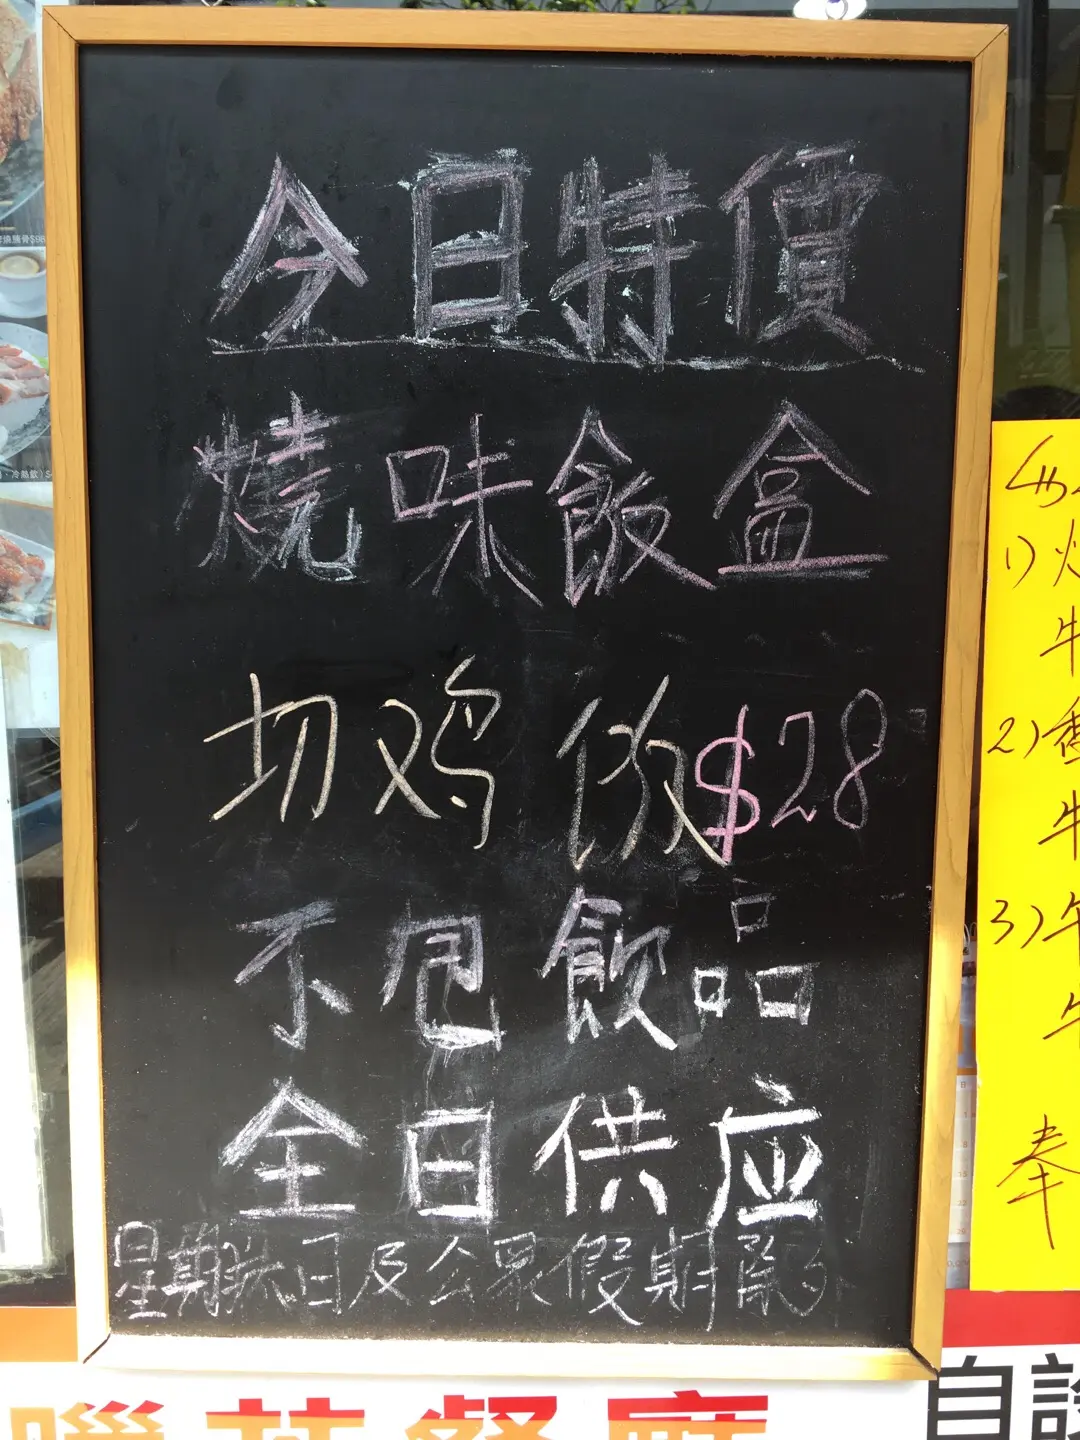 今日特價
燒味飯盒
切鸡飯$28
不包飲品
全日供应
星期日及公眾假期除外
1)
牛
2)
牛
3)牛
牛
奉
餐廳
自